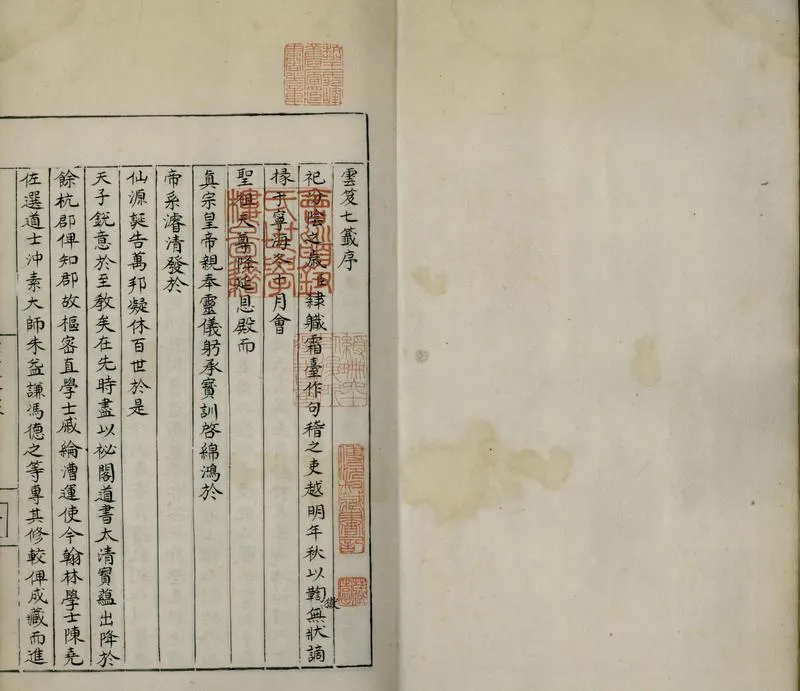 雲笈七籤序
祀汾陰之歲臣隸職霜臺作句稽之吏越明年秋以鞫獄無狀謫
掾于寧海冬十月會
聖祖天尊降延恩殿而
真宗皇帝親奉靈儀躬承寳訓啓綿鴻於
帝系濬清發於
仙源誕告萬邦凝休百世於是
天子銳意於至教矣在先時盡以祕閣道書太清寳蘊出降於
餘杭郡俾知郡故樞密直學士戚綸漕運使今翰林學士陳堯
佐選道士沖素大師朱益謙馮德之等專其修較俾成藏而進